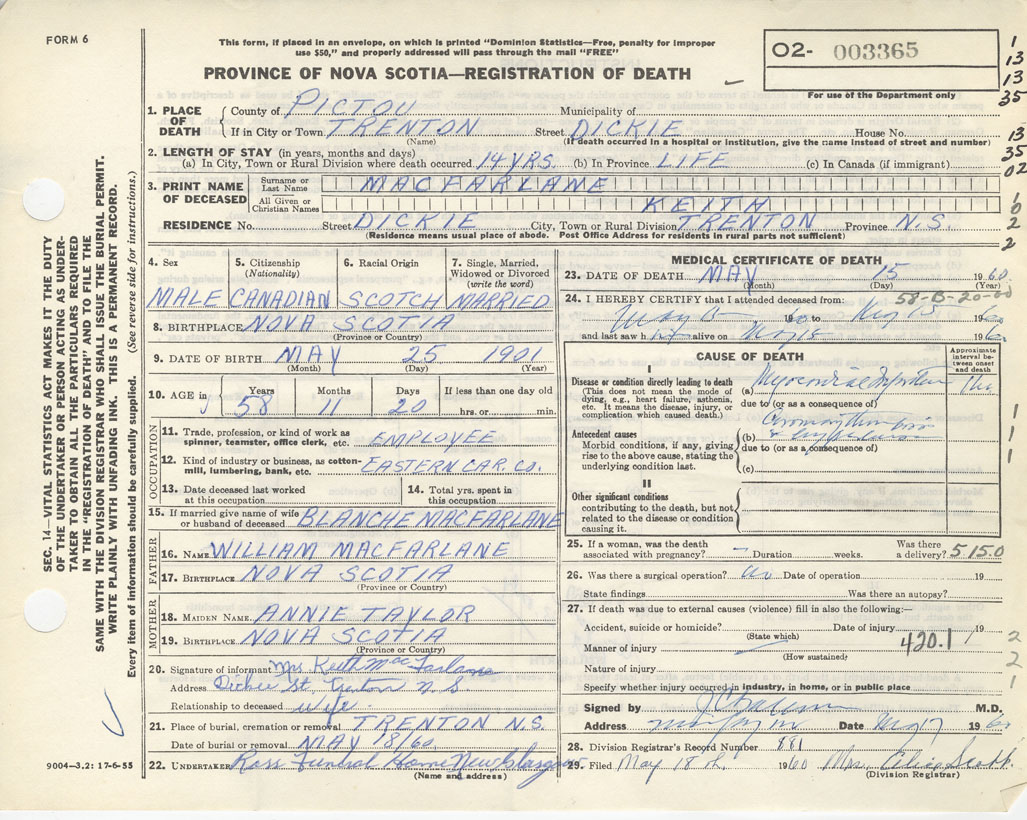 FORM 6
This form, if placed in an envelope, on which is printed "Dominion Statistics—Free, penalty for improper
use $50," and properly addressed will pass through the mail "FREE"
PROVINCE OF NOVA SCOTIA—REGISTRATION OF DEATH
02- 003365
For use of the Department only
1
13
13
35
13
35
02
1
0
2
2
1. PLACE OF DEATH
County of PICTOU Municipality of
If in City or Town TRENTON Street DICKIE House No.
(Name) (If death occurred in a hospital or institution, give the name instead of street and number)
2. LENGTH OF STAY (in years, months and days)
(a) In City, Town or Rural Division where death occurred 14 YRS (b) In Province LIFE (c) In Canada (if immigrant)
3. PRINT NAME OF DECEASED
Surname or Last Name MACFARLANE
All Given or Christian Names KEITH
RESIDENCE No. Street DICKIE City, Town or Rural Division TRENTON Province N.S.
(Residence means usual place of abode. Post Office Address for residents in rural parts not sufficient)
4. Sex MALE
5. Citizenship (Nationality) CANADIAN
6. Racial Origin SCOTCH
7. Single, Married, Widowed or Divorced (write the word) MARRIED
8. BIRTHPLACE NOVA SCOTIA
(Province or Country)
9. DATE OF BIRTH MAY 25 1901
(Month) (Day) (Year)
10. AGE in Years 58 Months 11 Days 20 If less than one day old hrs. or min.
OCCUPATION
11. Trade, profession, or kind of work as spinner, teamster, office clerk, etc. EMPLOYEE
12. Kind of industry or business, as cotton-mill, lumbering, bank, etc. EASTERN CAR. CO.
13. Date deceased last worked at this occupation
14. Total yrs. spent in this occupation
15. If married give name of wife or husband of deceased BLANCHE MACFARLANE
FATHER
16. NAME WILLIAM MACFARLANE
17. BIRTHPLACE NOVA SCOTIA
(Province or Country)
MOTHER
18. MAIDEN NAME ANNIE TAYLOR
19. BIRTHPLACE NOVA SCOTIA
(Province or Country)
20. Signature of informant Mrs. Keith MacFarlane
Address Dickie St, Trenton N.S.
Relationship to deceased wife.
21. Place of burial, cremation or removal TRENTON N.S.
Date of burial or removal MAY 18/60
22. UNDERTAKER Ross Funeral Home New Glasgow
(Name and address)
MEDICAL CERTIFICATE OF DEATH
23. DATE OF DEATH MAY 15 1960
(Month) (Day) (Year)
58-B-20-
24. I HEREBY CERTIFY that I attended deceased from:
May 19 to May 15 1960
and last saw h alive on May 15 196
CAUSE OF DEATH
Approximate interval between onset and death
I
Disease or condition directly leading to death
(This does not mean the mode of dying, e.g., heart failure, asthenia, etc. It means the disease, injury, or complication which caused death.)
(a) Myocardial Infarction
due to (or as a consequence of)
Antecedent causes
Morbid conditions, if any, giving rise to the above cause, stating the underlying condition last.
(b) Coronary
due to (or as a consequence of)
(c)
II
Other significant conditions
contributing to the death, but not related to the disease or condition causing it.
1
1
1
25. If a woman, was the death associated with pregnancy? – Duration weeks. Was there a delivery? 5150
26. Was there a surgical operation? no Date of operation 19
State findings Was there an autopsy?
27. If death was due to external causes (violence) fill in also the following:—
Accident, suicide or homicide? Date of injury 19
(State which)
420.1
Manner of injury
(How sustained)
Nature of injury
Specify whether injury occurred in industry, in home, or in public place
2
2
1
Signed by M.D.
Address Date May 17 1960
28. Division Registrar's Record Number 881
29. Filed May 18th. 1960 Mrs. Alice Scott.
(Division Registrar)
SEC. 14—VITAL STATISTICS ACT MAKES IT THE DUTY
OF THE UNDERTAKER OR PERSON ACTING AS UNDER-
TAKER TO OBTAIN ALL THE PARTICULARS REQUIRED
IN THE "REGISTRATION OF DEATH" AND TO FILE THE
SAME WITH THE DIVISION REGISTRAR WHO SHALL ISSUE THE BURIAL PERMIT.
WRITE PLAINLY WITH UNFADING INK. THIS IS A PERMANENT RECORD.
Every item of information should be carefully supplied. (See reverse side for instructions.)
9004—3.2: 17-6-55